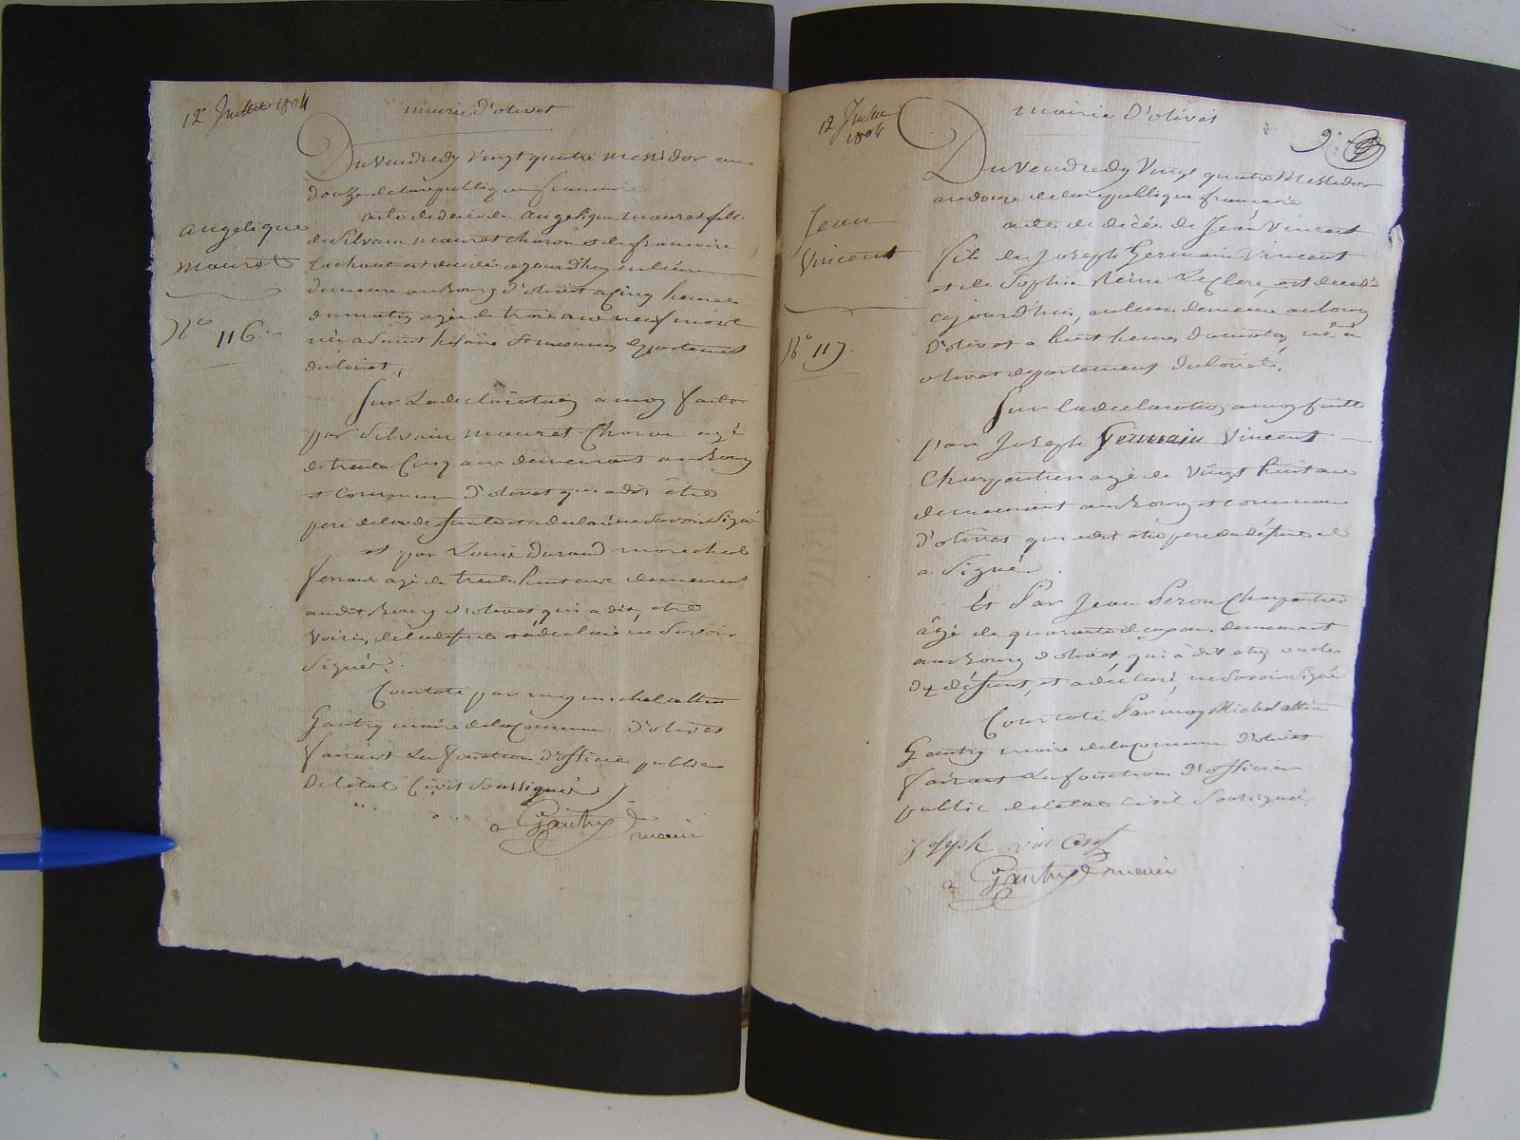 12 Juillet 1804
mairie d'olivet
Du vendredy vingt quatre messidor an
douze de la republique francaise
acte de décès de angelique mauret fille
de Silvain mauret charon et de francoise
est decedée ajourdhuy
demeure au bourg d'olivet a cinq heures
du matin agée de trois ans neuf mois
née a Saint hilaire St mesmin departement
du loiret,
angelique
mauret
No 116
Sur La declaration a moy faite
par Silvain mauret Charon agé
de trente Cinq ans demeurant au Bourg
et Commune d'olivet qui a dit être
pere de la defunte et a declaré ne Savoir Signé
et par Louis durand marechal
ferrant agé de trente huit ans demeurant
audit Bourg d'olivet qui a dit etre
Voisin de la defunte et a declaré ne Savoir
Signer.
Constaté par moy michel
Gautry maire de la Commune d'olivet
faisant Les fonctions d'officier public
De l'état Civil Soussigné
Gautry maire
12 Juillet
1804
mairie D'olivet
9e
Du Vendredy Vingt quatre Messidor
an douze de la republique francaise
acte de décès de Jean Vincent
fils de Joseph Germain Vincent
et de Sophie Reine Leclerc, est decedé
ajourd'hui, demeure au bourg
D'olivet a huit heures du matin, né a
olivet departement du loiret,
Jean
Vincent
No 117
Sur la declaration a moy faitte
par Joseph Germain Vincent
Charpentier agé de Vingt huit ans
demeurant au Bourg et commune
d'olivet qui a dit etre pere du défunt et
a Signé.
Et Par Jean Charpentier
âgé de quarante demeurant
au Bourg d'olivet qui à dit etre oncle
du défunt, et a declaré ne Savoir Signé
Constaté Par moy Michel
Gautry maire de la Commune d'olivet
faisant Les fonctions D'officier
public de l'état Civil Soussigné,
joseph vincent
Gautry maire